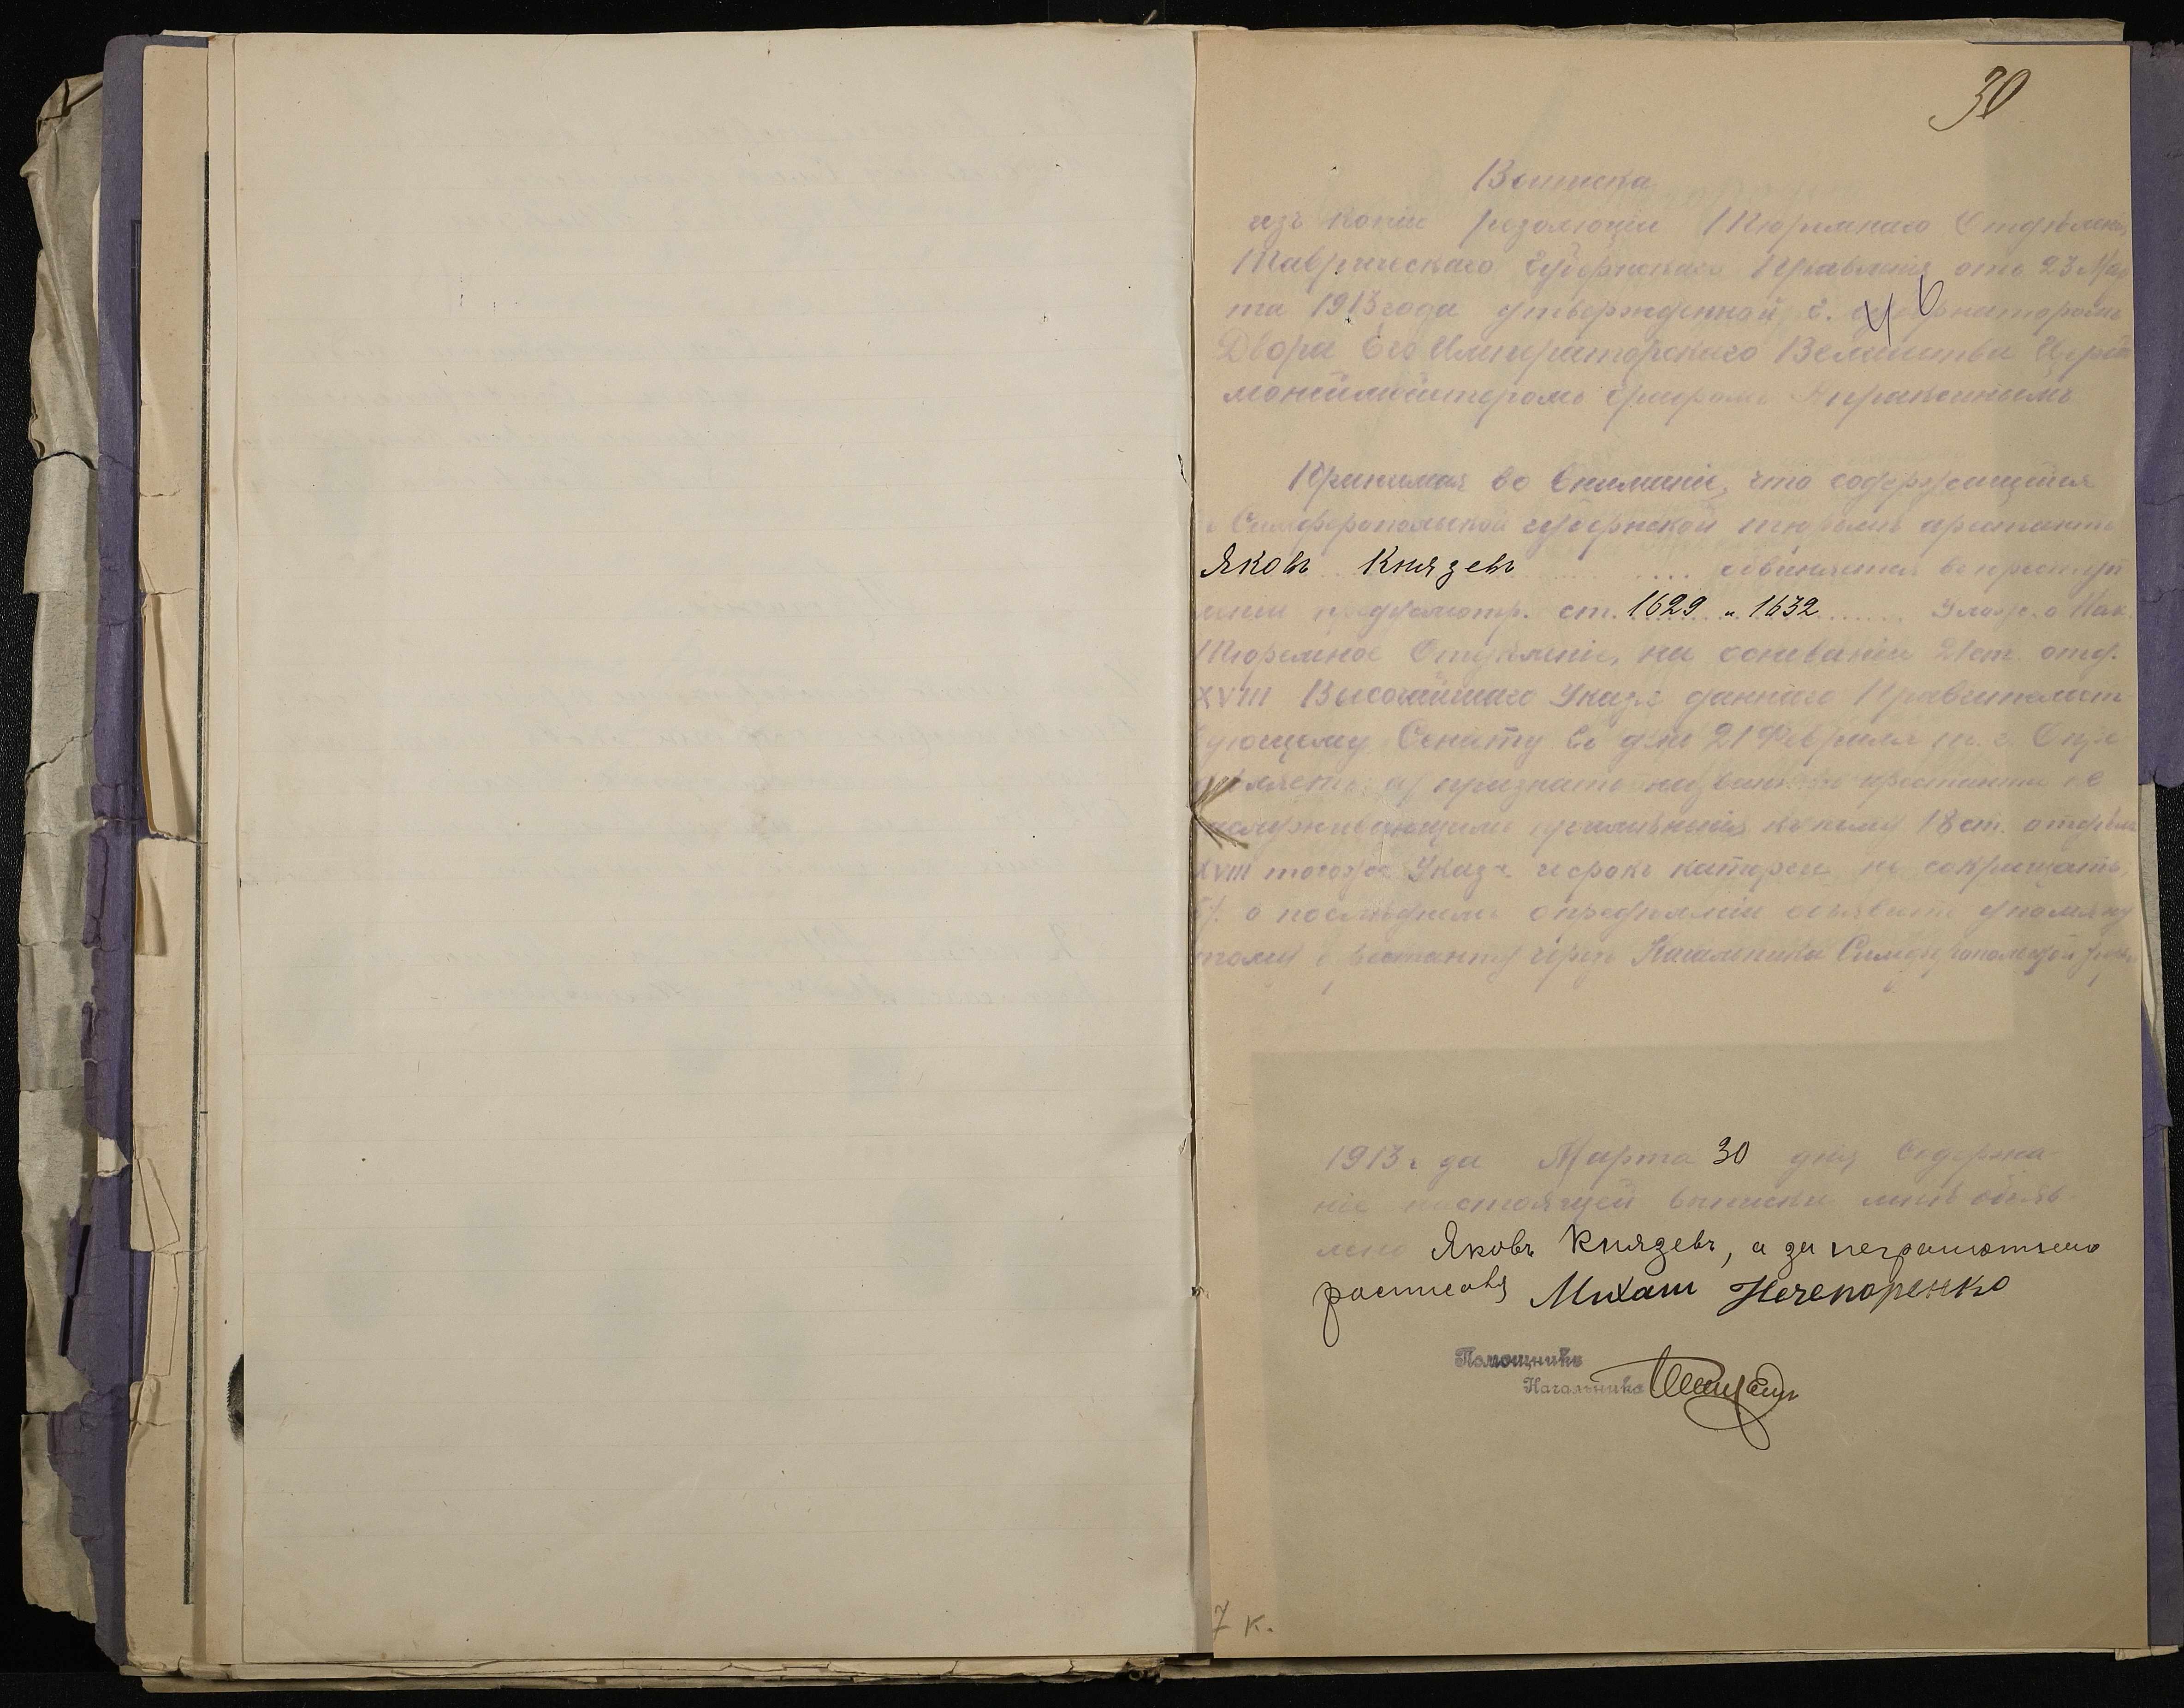 30
Выписка
изъ копіи резолюціи Тюремнаго Отдѣленія
Таврическаго Губернскаго Правленія отъ 23 Мар
та 1913 года утвержденной г. Губернаторомъ
46
Двора Его Императорскаго Величества Цере
моніймейстеромъ Графомъ Апраксинымъ
Принимая во вниманіе, что содержащійся
въ Симферопольской губернской тюрьмѣ арестантъ
Яковъ Князевъ обвиняется въ преступ
леніи предусмотр. ст. 1629 и 1632 Улож. о Нак.
Тюремное Отдѣленіе, на основаніи 21 ст. отд.
XVIII Высочайшаго Указа даннаго Правительст
вующему Сенату въ день 21 Февраля т. г. Опре
дѣляетъ: а) признать названнаго арестанта не
заслуживающимъ примѣненія къ нему 18 ст. отдѣла
XVIII того же Указа и срокъ каторги не сокращать,
б) о послѣдуемъ опредѣленіи объявить упомяну
тому арестанту чрезъ Начальника Симферопольской тюрь
1913 года Марта 30 дня Содержа-
ніе настоящей выписки мнѣ объяв-
лено Яковъ Князевъ, а за неграмотнаго
росписовя Михаил Нечепоренко
Помощникъ
Начальника
7 к.